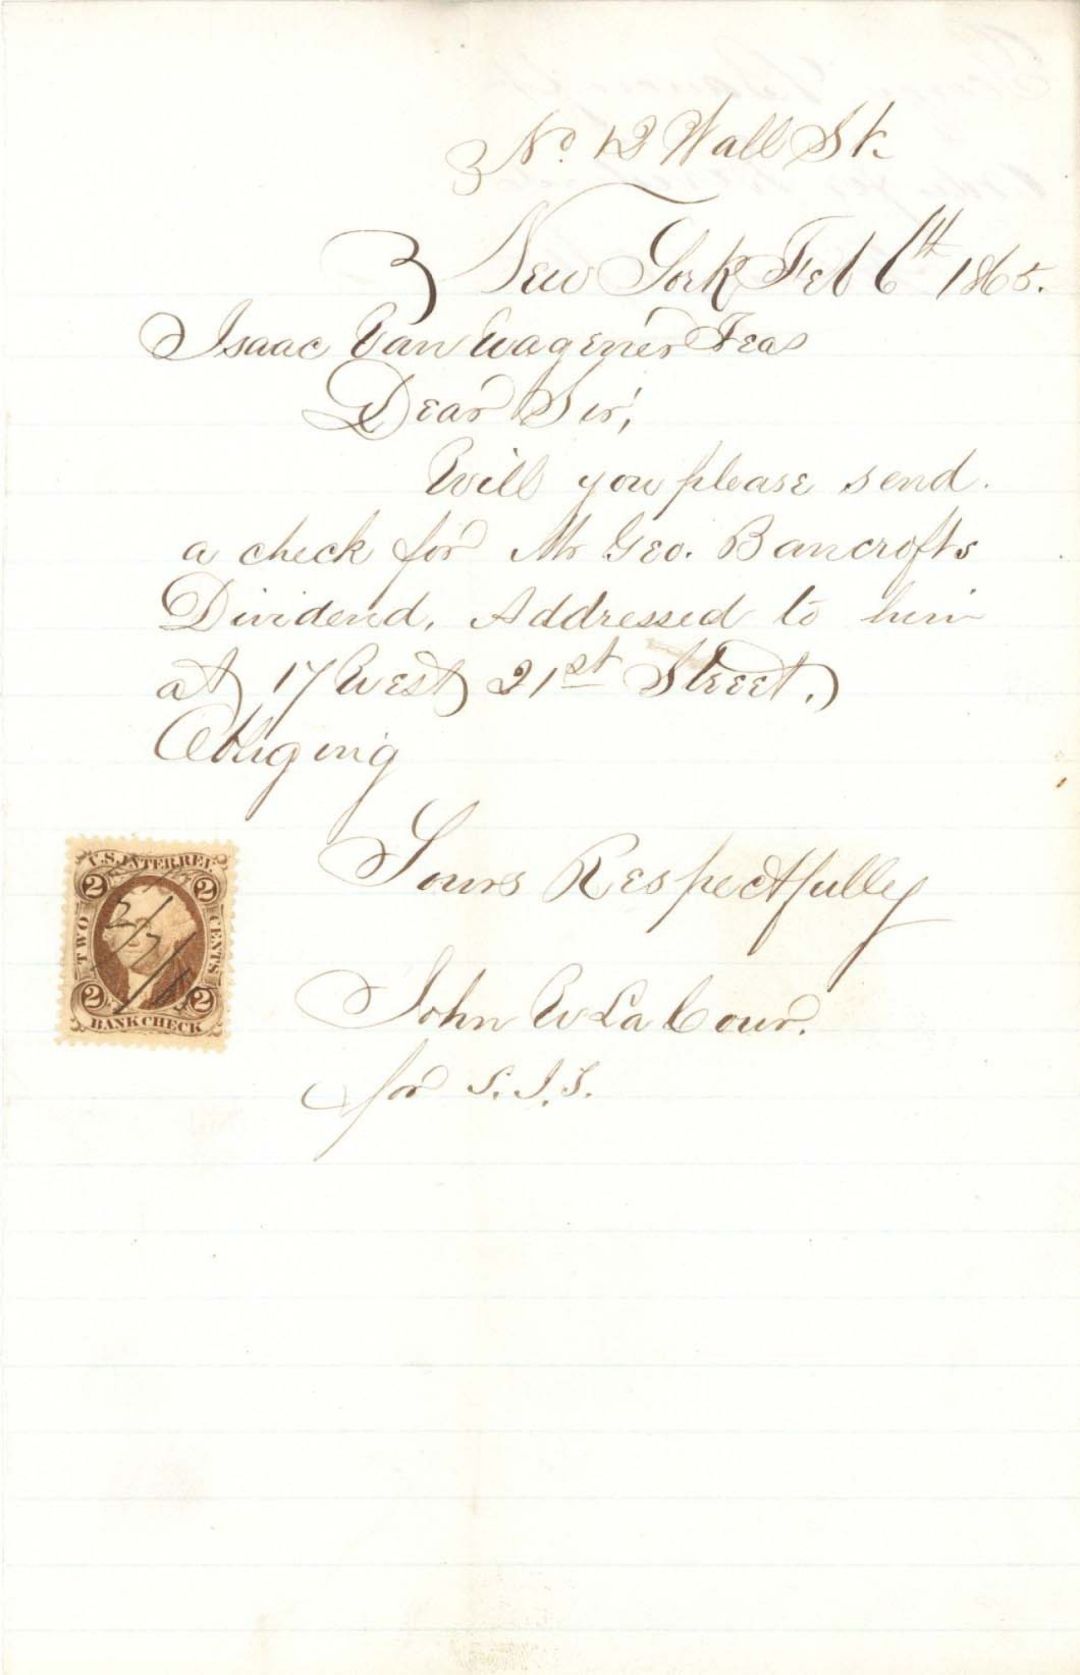 No. 12 Wall St.
New York Feb 6th 1865.
Isaac Van Wagener Treas
Dear Sir,
Will you please send
a check for Mr Geo. Bancrofts
Dividend, Addressed to him
at 17 West 21st Street.
Obliging
Yours Respectfully
John W La Cour.
for S.J.S.
U.S. INTER REV.
2 2
TWO CENTS
2/7/65
2 2
BANK CHECK